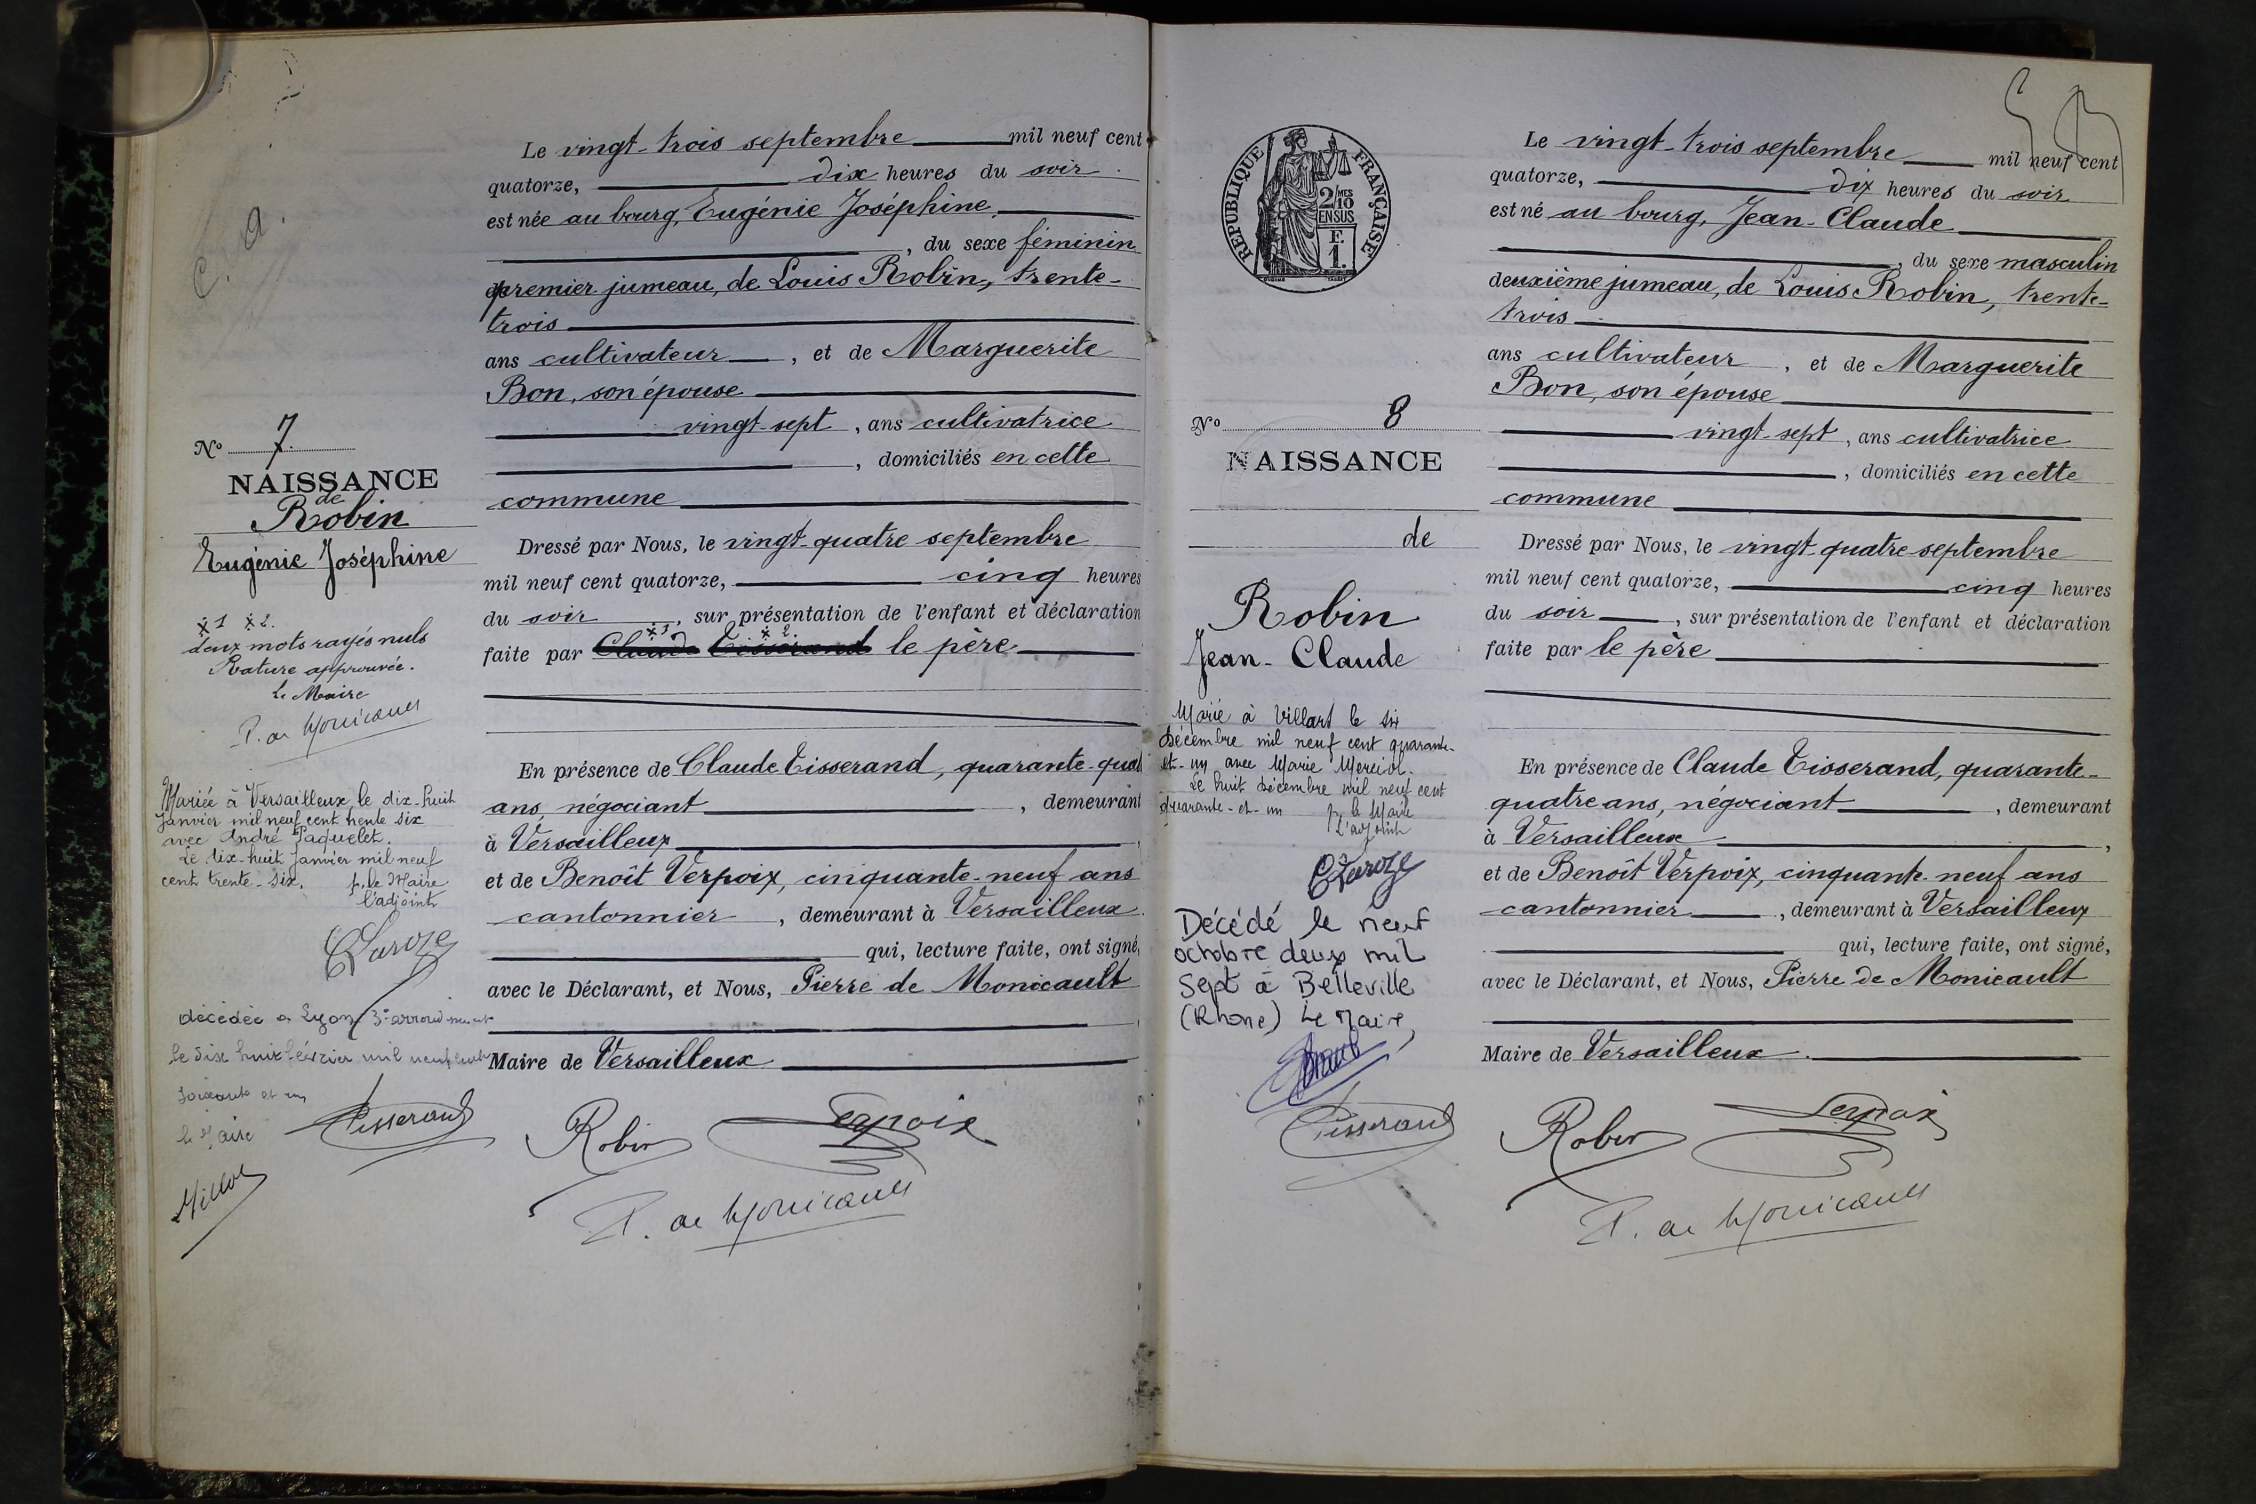 C. a.
Nº 7
NAISSANCE
de
Robin
Eugénie Joséphine
x1 x2.
deux mots rayés nuls
Rature approuvée.
Le Maire
P. de Monicault
Mariée à Versailleux, le dix-huit
janvier mil neuf cent trente six
avec André Paquelet.
Le dix-huit janvier mil neuf
cent trente-six. p. le Maire
l'adjoint
CLaroze
décédée à Lyon 3e arrondissement
le dix huit février mil neuf cent
soixante et un
le Maire
Le vingt-trois septembre mil neuf cent
quatorze, dix heures du soir
est née au bourg, Eugénie Joséphine
, du sexe féminin
premier jumeau, de Louis Robin, trente-
trois
ans cultivateur, et de Marguerite
Bon, son épouse
vingt-sept, ans cultivatrice
, domiciliés en cette
commune
Dressé par Nous, le vingt-quatre septembre
mil neuf cent quatorze, cinq heures
du soir, sur présentation de l'enfant et déclaration
x1 x2
faite par Claude Tisserand le père
En présence de Claude Tisserand, quarante-quat
ans, négociant, demeurant
à Versailleux,
et de Benoît Verpoix, cinquante-neuf ans
cantonnier, demeurant à Versailleux
qui, lecture faite, ont signé,
avec le Déclarant, et Nous, Pierre de Monicault
Maire de Versailleux
Tisserand Robin Verpoix
P. de Monicault
RÉPUBLIQUE FRANÇAISE
2/10 MES
EN SUS
F.
1.
Nº 8
NAISSANCE
de
Robin
Jean-Claude
Marié à Villars le six
décembre mil neuf cent quarante-
et-un avec Marie Merciol.
Le huit décembre mil neuf cent
quarante-et-un p. le Maire
L'adjoint
CLaroze
Décédé le neuf
octobre deux mil
sept à Belleville
(Rhône) Le Maire,
Le vingt-trois septembre mil neuf cent
quatorze, dix heures du soir
est né au bourg, Jean-Claude
, du sexe masculin
deuxième jumeau, de Louis Robin, trente-
trois
ans cultivateur, et de Marguerite
Bon, son épouse
vingt-sept, ans cultivatrice
, domiciliés en cette
commune
Dressé par Nous, le vingt-quatre septembre
mil neuf cent quatorze, cinq heures
du soir, sur présentation de l'enfant et déclaration
faite par le père
En présence de Claude Tisserand, quarante-
quatre ans, négociant, demeurant
à Versailleux,
et de Benoît Verpoix, cinquante-neuf ans
cantonnier, demeurant à Versailleux
qui, lecture faite, ont signé,
avec le Déclarant, et Nous, Pierre de Monicault
Maire de Versailleux.
Tisserand Robin Verpoix
P. de Monicault